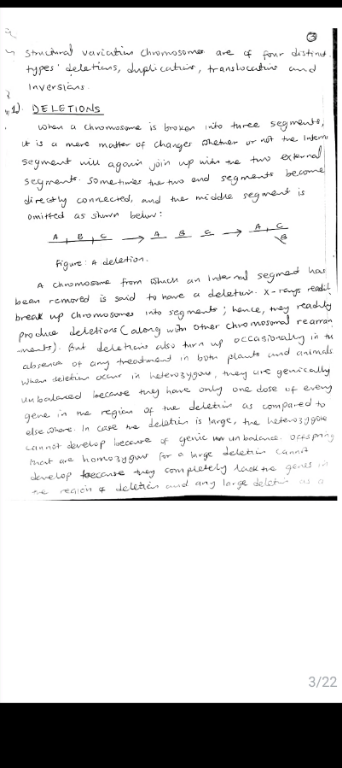 structural variation chromosomes are of four distinct
types: deletions, duplication, translocation and
inversions.
1) DELETIONS
When a chromosome is broken into three segments,
it is a mere matter of changes whether or not the intern
segment will again join up with the two external
segments. Sometimes the two end segments become
directly connected, and the middle segment is
omitted as shown below:
A B C → A B C → A C B
Figure: A deletion.
A chromosome from which an internal segment has
been removed is said to have a deletion. X-rays readil
break up chromosomes into segments; hence, they readily
produce deletions (along with other chromosomal rearran
ments). But deletions also turn up occasionally in the
absence of any treatment in both plants and animals
When deletion occur in heterozygous, they are genically
unbalanced because they have only one dose of every
gene in the region of the deletion as compared to
elsewhere. In case the deletion is large, the heterozygote
cannot develop because of genic unbalance. Offspring
that are homozygous for a large deletion cannot
develop because they completely lack the genes in
the region of deletion and any large deletion as a
3/22